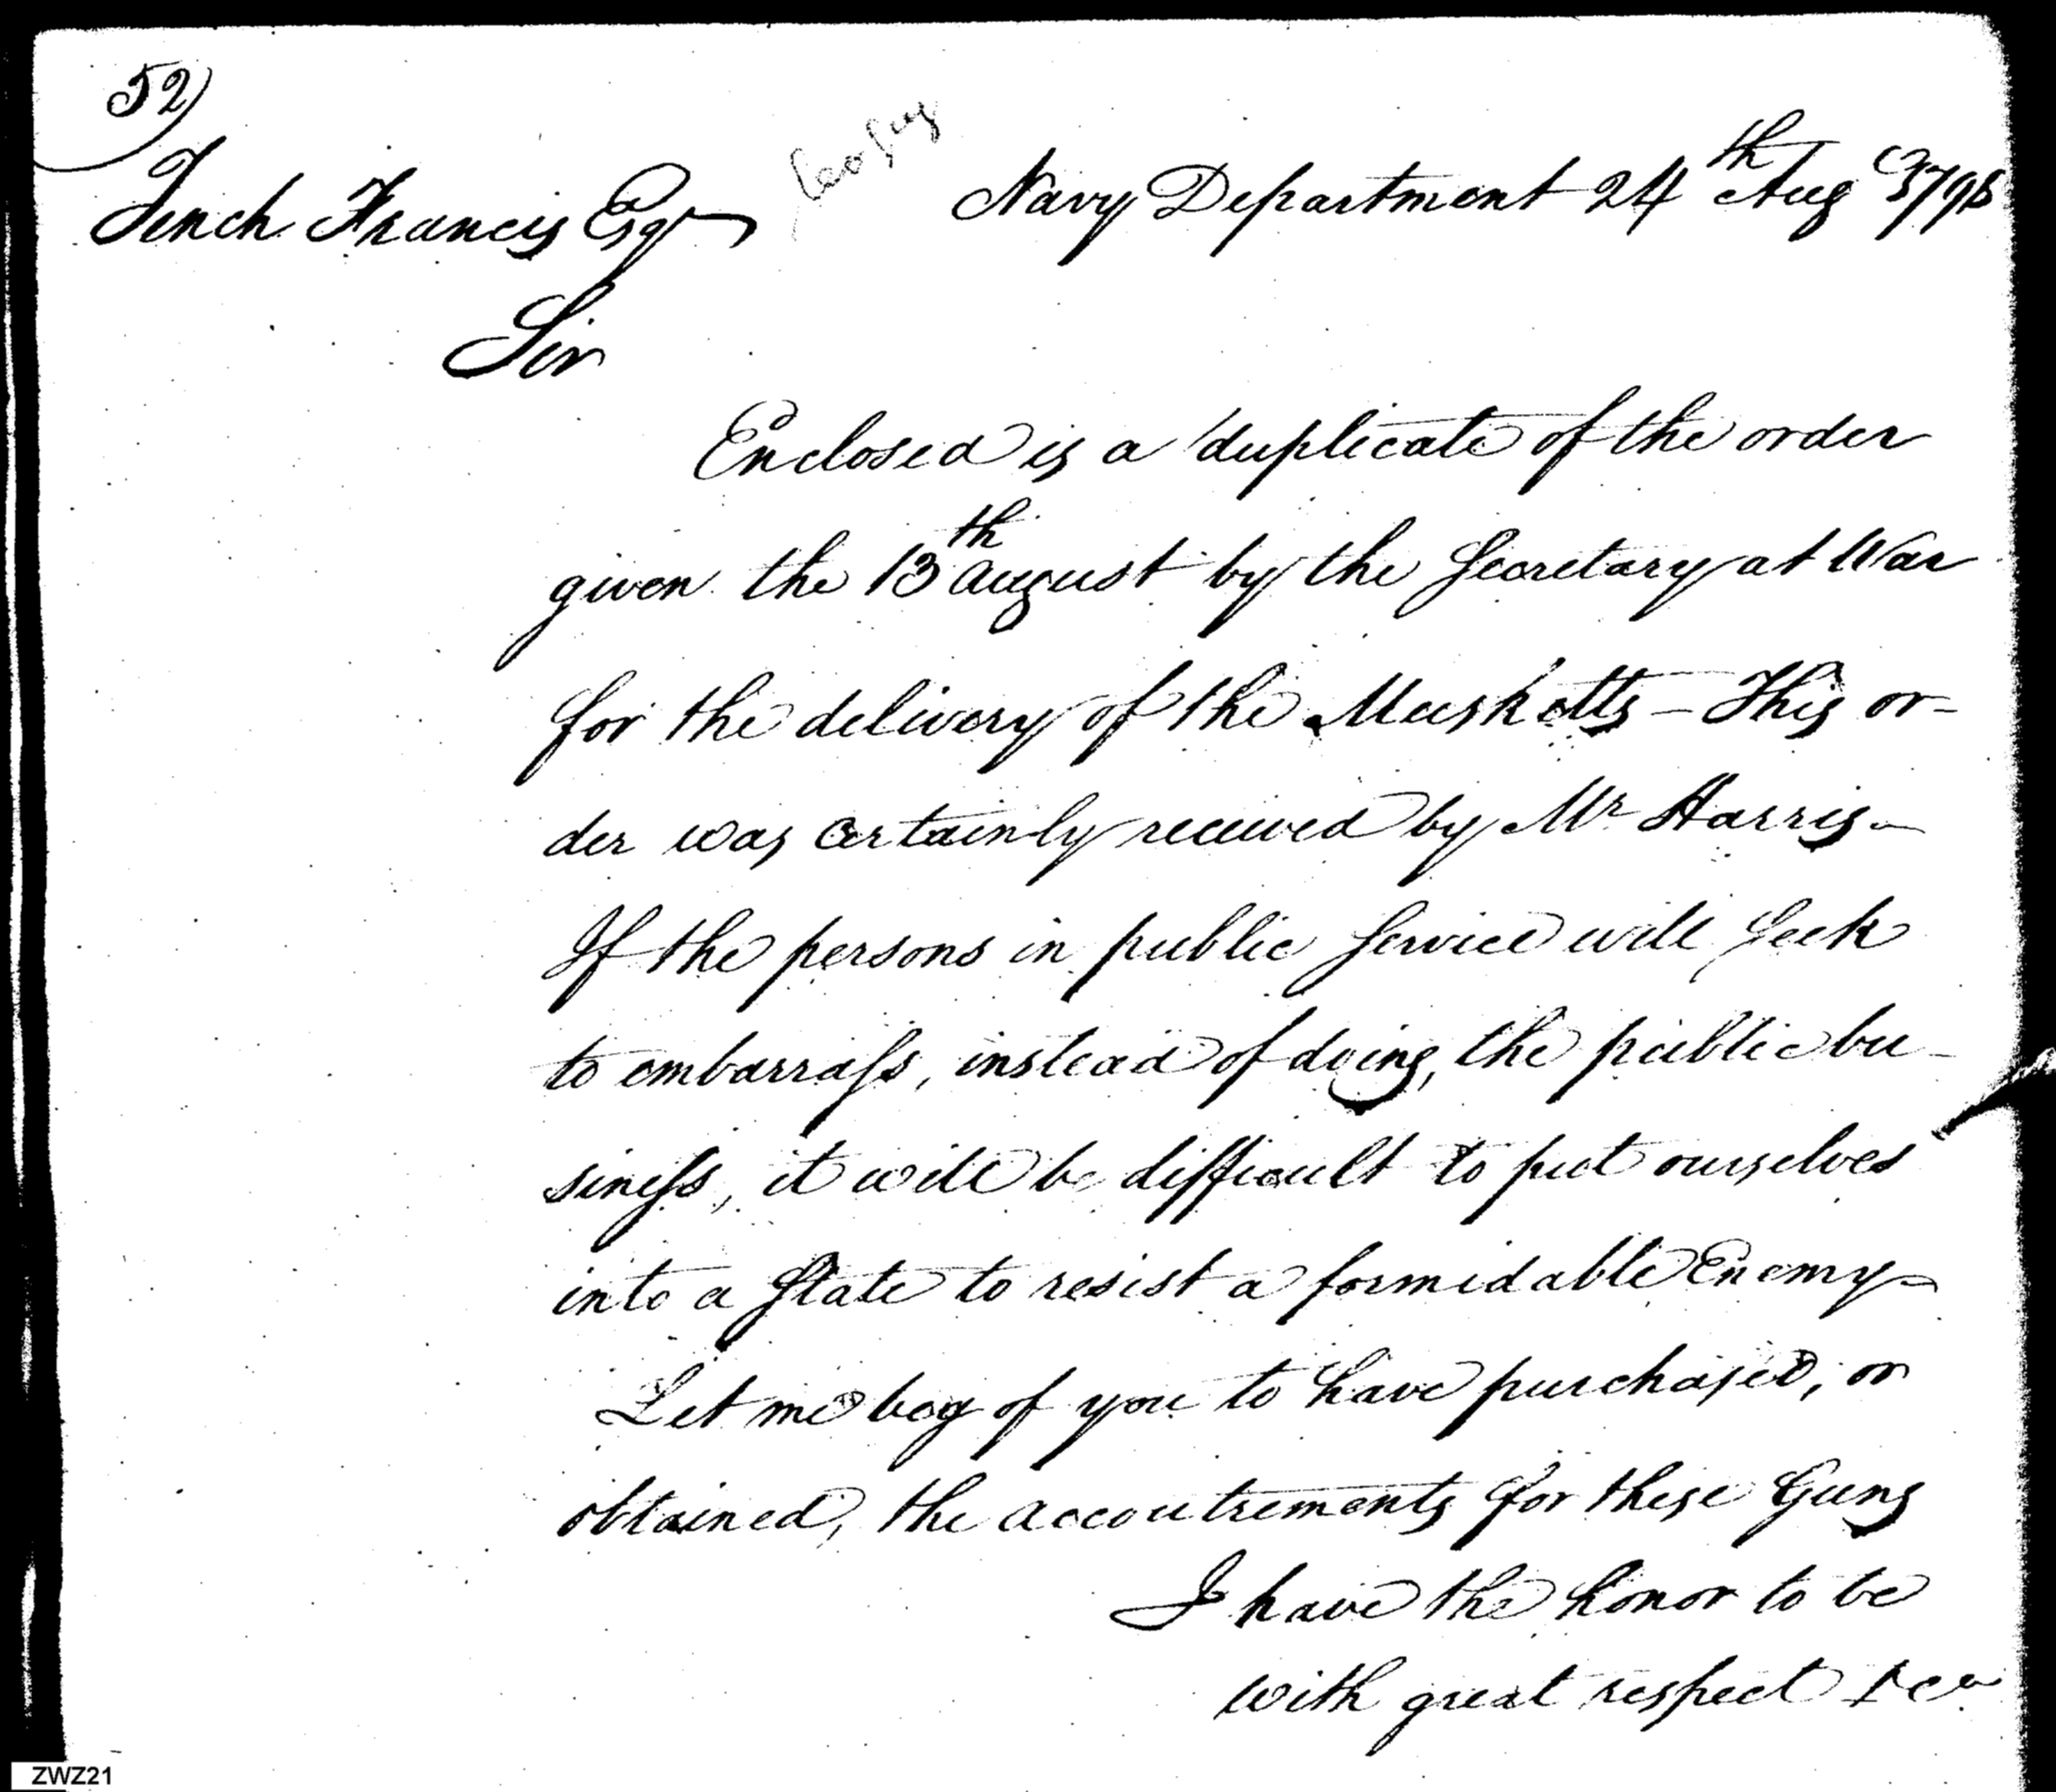 52)
Tench Francis Esqr
Navy Department 24th Aug 1798
Sir
Enclosed is a duplicate of the order
given the 13th august by the Secretary at War
for the delivery of the Musketts – This or-
der was certainly received by Mr Harris –
If the persons in public Service will Seek
to embarrass, instead of doing, the public bu-
siness, it will be difficult to put ourselves
into a State to resist a formidable Enemy –
Let me beg of you to have purchased, or
obtained, the accoutrements for these Guns
I have the honor to be
with great respect &ca
ZWZ21